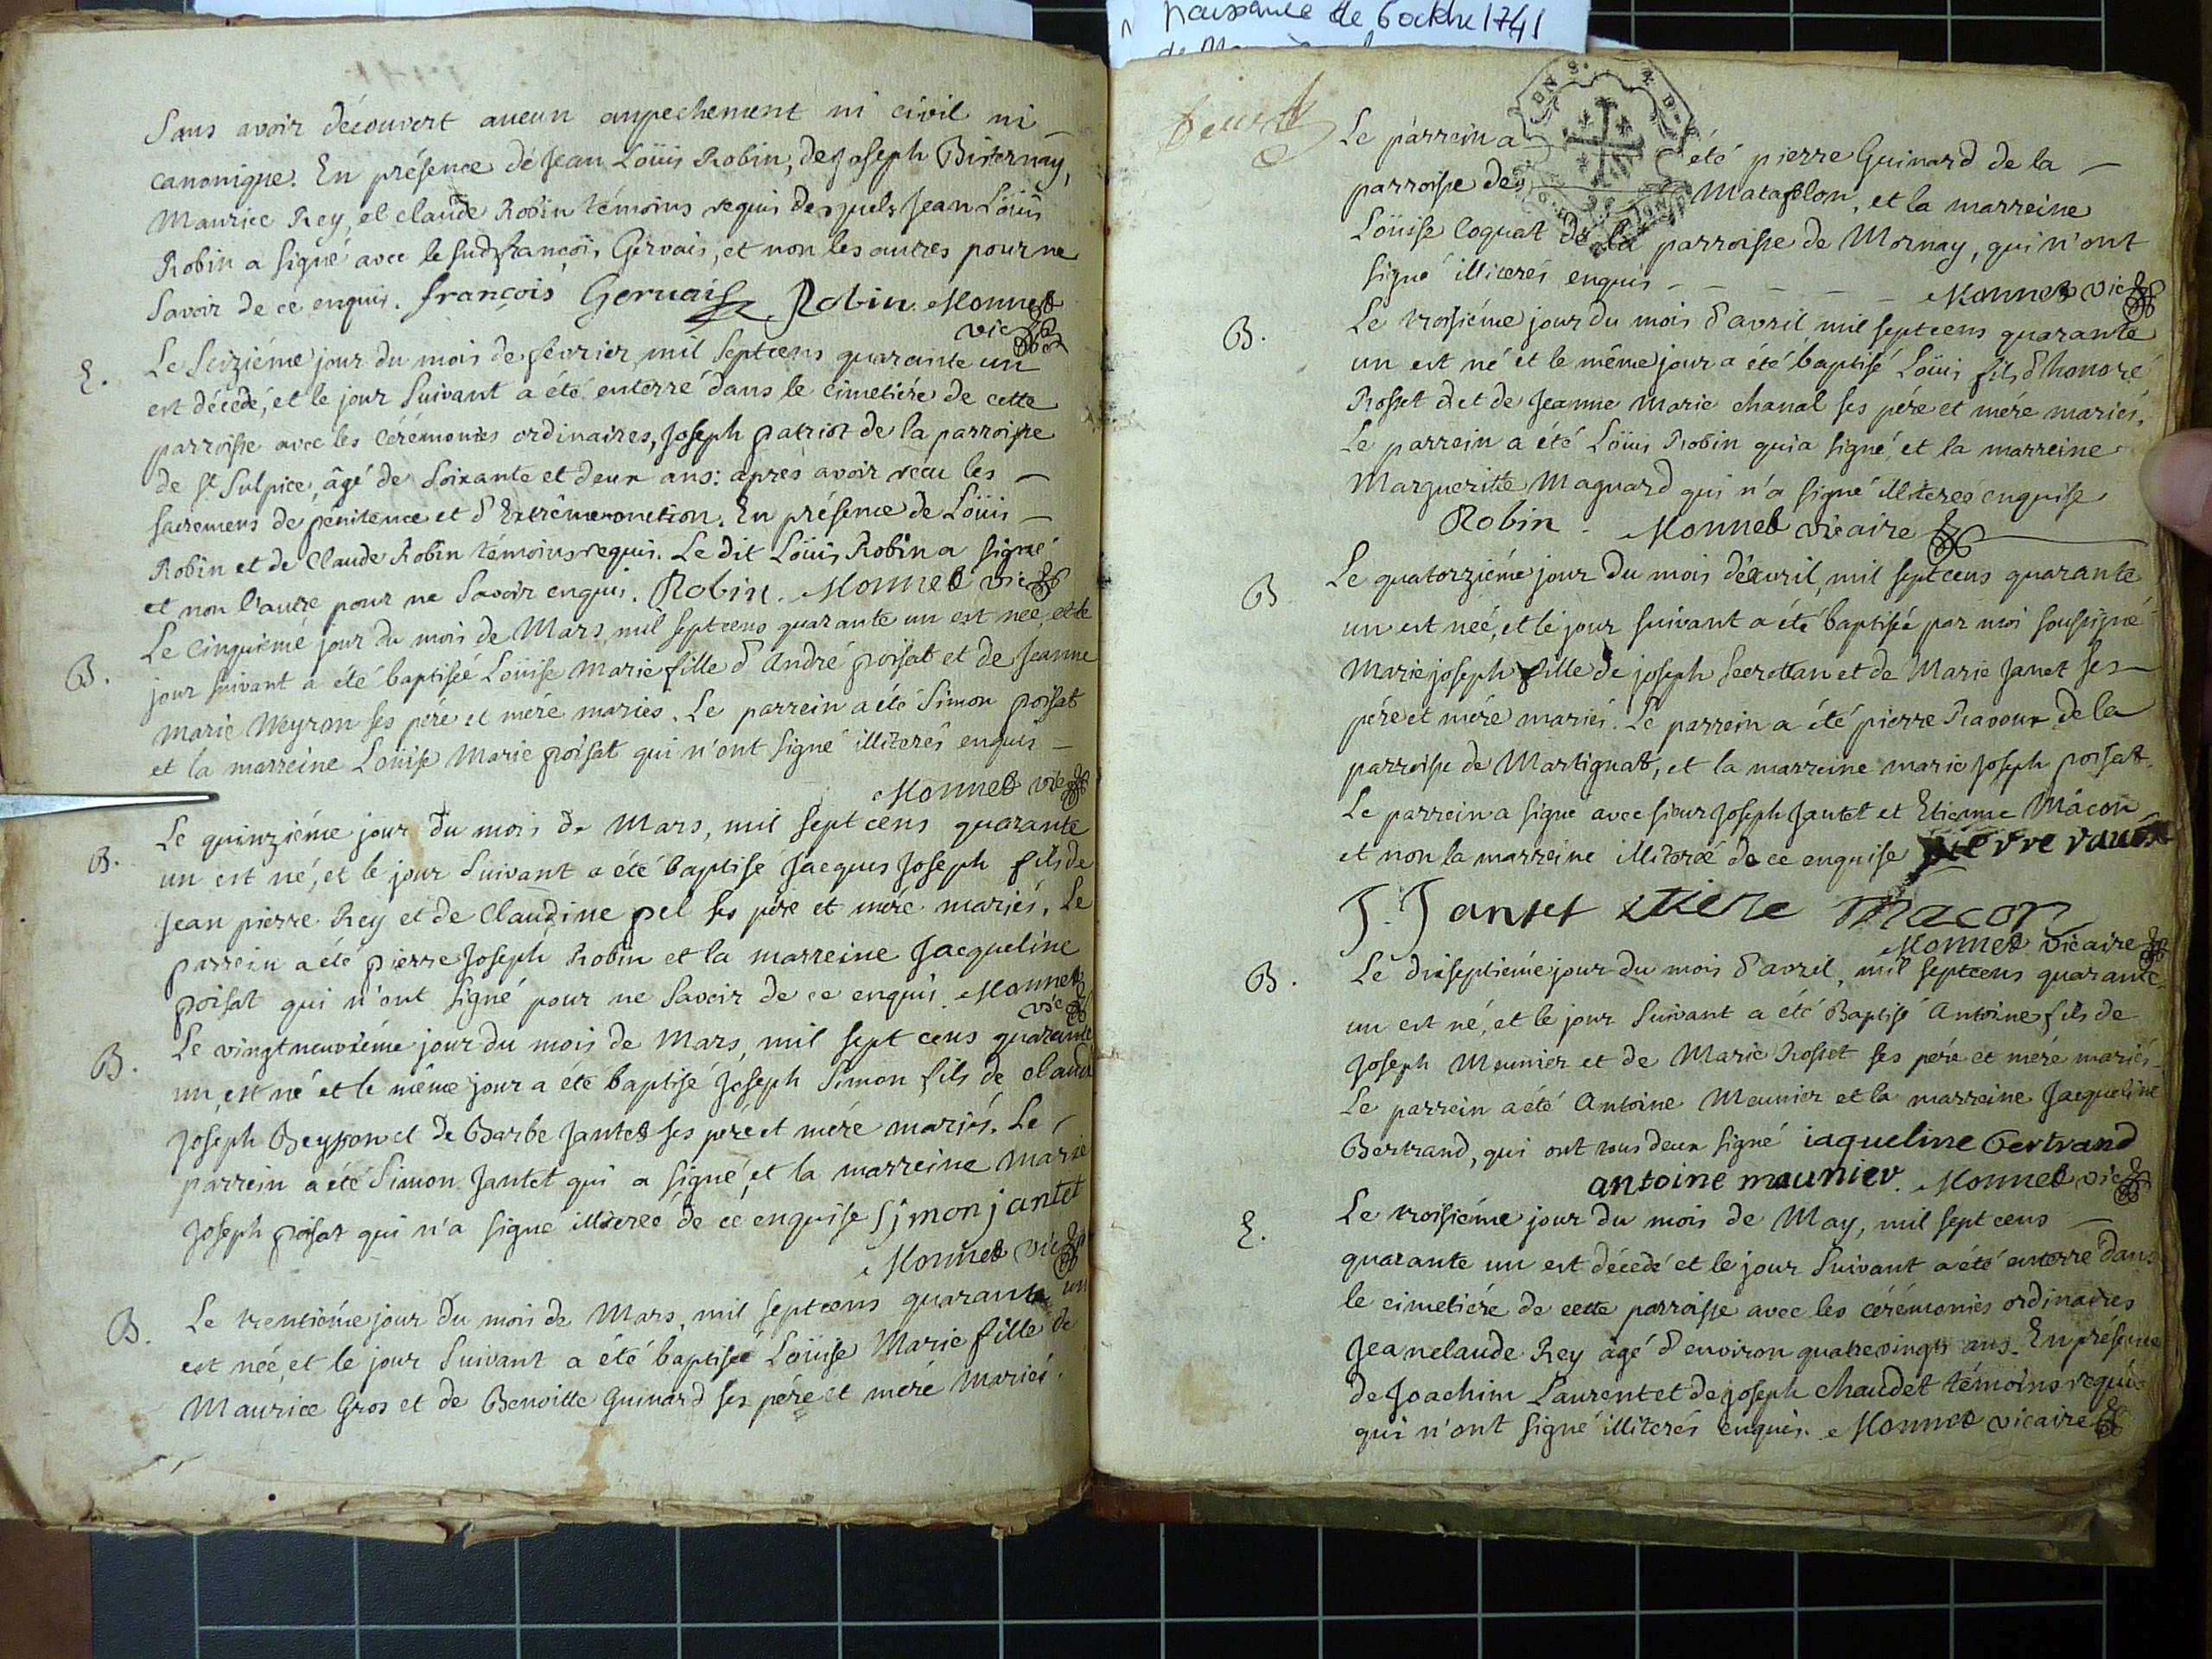 naissance de 6 octbre 1741
Sans avoir découvert aucun anpechement ni civil ni
canonique. En présence de Jean Loüis Robin, de Joseph Bisternay,
Maurice Rey, et claude Robin témoins requis desquels Jean Loüis
Robin a signé avec le sud françois Gervais, et non les autres pour ne
savoir de ce enquis. françois Gervais Robin Monnet
vic
E. Le Seiziéme jour du mois de février mil septcens quarante un
est décédé, et le jour suivant a été enterré dans le cimetiére de cette
parroisse avec les Cérémonies ordinaires, Joseph patriot de la parroisse
de St Sulpice, âgé de soixante et deux ans: apres avoir recu les
sacremens de pénitence et d'Extrême onction. En présence de Loüis
Robin et de Claude Robin témoins requis. Le dit Loüis Robin a signé
et non l'autre pour ne savoir enquis. Robin. Monnet vic
B. Le Cinquiéme jour du mois de Mars mil septcens quarante un est née, et le
jour suivant a été baptisée Loüise Marie fille d'André poisat et de Jeanne
Marie Meyron ses pére et mére mariés. Le parrein a été Simon poisat
et la marreine Loüise Marie poisat qui n'ont signé illiterés enquis
Monnet vic
B. Le quinziéme jour du mois de Mars, mil sept cens quarante
un est né, et le jour suivant a été baptisé Jacques Joseph fils de
Jean pierre Rey et de Claudine pel ses pére et mére mariés. Le
parrein a été pierre Joseph Robin et la marreine Jacqueline
poisat qui n'ont signé pour ne savoir de ce enquis. Monnet
vic
B. Le vingtneuviéme jour du mois de Mars, mil sept cens quarante
un est né et le même jour a été baptisé Joseph Simon fils de claude
Joseph Beyron et de Barbe Jantet ses pére et mére mariés. Le
parrein a été Simon Jantet qui a signé, et la marreine Marie
Joseph poisat qui n'a signé illiterée de ce enquise Sjmon jantet
Monnet vic
B. Le trentiéme jour du mois de Mars, mil septcens quarante un
est née, et le jour suivant a été baptisée Loüise Marie fille de
Maurice Gros et de Benoitte Guinard ses pére et mére mariés.
Le parrein a été pierre Guinard de la
parroisse de Matafelon, et la marreine
Loüise Coquat de la parroisse de Mornay, qui n'ont
signé illiterés enquis - - - - - Monnet vic
B. Le troisiéme jour du mois d'avril mil septcens quarante
un est né et le même jour a été baptisé Loüis fils d'honoré
Rosset et de Jeanne Marie chanal ses pére et mére mariés.
Le parrein a été Loüis Robin qui a signé, et la marreine
Margueritte Maguard qui n'a signé illiterée enquise
Robin. Monnet vicaire
B Le quatorziéme jour du mois d'avril, mil septcens quarante
un est née, et le jour suivant a été baptisée par moi soussigné
Marie joseph fille de joseph Secrettan et de Marie Janet ses
pére et mére mariés. Le parrein a été pierre Ravoux de la
parroisse de Martignat, et la marreine marie Joseph poisat.
Le parrein a signé avec sieur Joseph Jantet et Etienne Mâcon
et non la marreine illiterée de ce enquise pierre
J. Jantet Macon
Monnet vicaire
B. Le dixseptiéme jour du mois d'avril, mil septcens quarante
un est né, et le jour suivant a été Baptisé Antoine fils de
Joseph Meunier et de Marie Rosset ses pére et mére mariés
Le parrein a été Antoine Meunier et la marreine Jacqueline
Bertrand, qui ont tous deux signé iaqueline bertrand
antoine meunier. Monnet vic
E. Le troisiéme jour du mois de May, mil sept cens
quarante un est décédé et le jour suivant a été enterré dans
le cimetiére de cette parroisse avec les cérémonies ordinaires
Jeanclaude Rey agé d'environ quatrevingts ans. En présence
de Joachim Laurent et de joseph chaudet témoins requis
qui n'ont signé illiterés enquis. Monnet vicaire